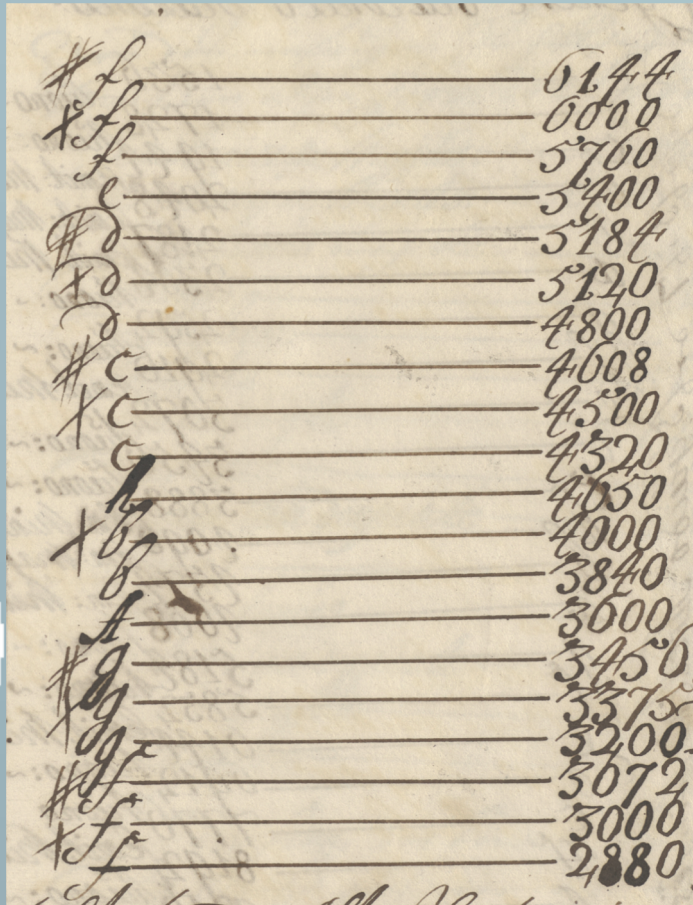 # f 6144
+ f 6000
f 5760
e 5400
# d 5184
+ d 5120
d 4800
# c 4608
+ c 4500
c 4320
h 4050
+ b 4000
b 3840
A 3600
# g 3456
+ g 3375
g 3200
# f 3072
+ f 3000
f 2880